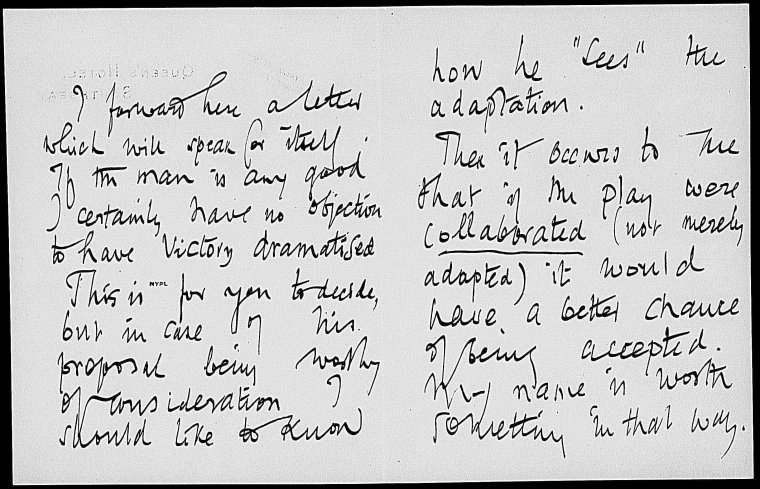 I forward here a letter
which will speak for itself.
If the man is any good
I certainly have no objection
to have Victory dramatised
This is NYPL for you to decide,
but in case of his
proposal being worthy
of consideration I
should like to know
how he "sees" the
adaptation.
Then it occurs to me
that if the play were
collaborated (not merely
adapted) it would
have a better chance
of being accepted.
My name is worth
something in that way.